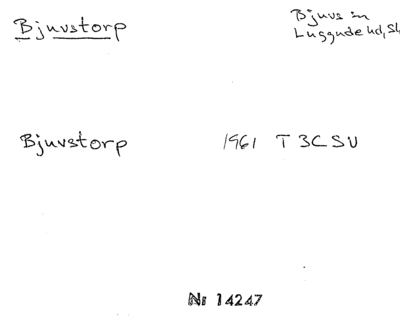 Bjuvstorp
Bjuvs sn
Luggude hd, Sk
Bjuvstorp 1961 T 3C SV
Nr 14247